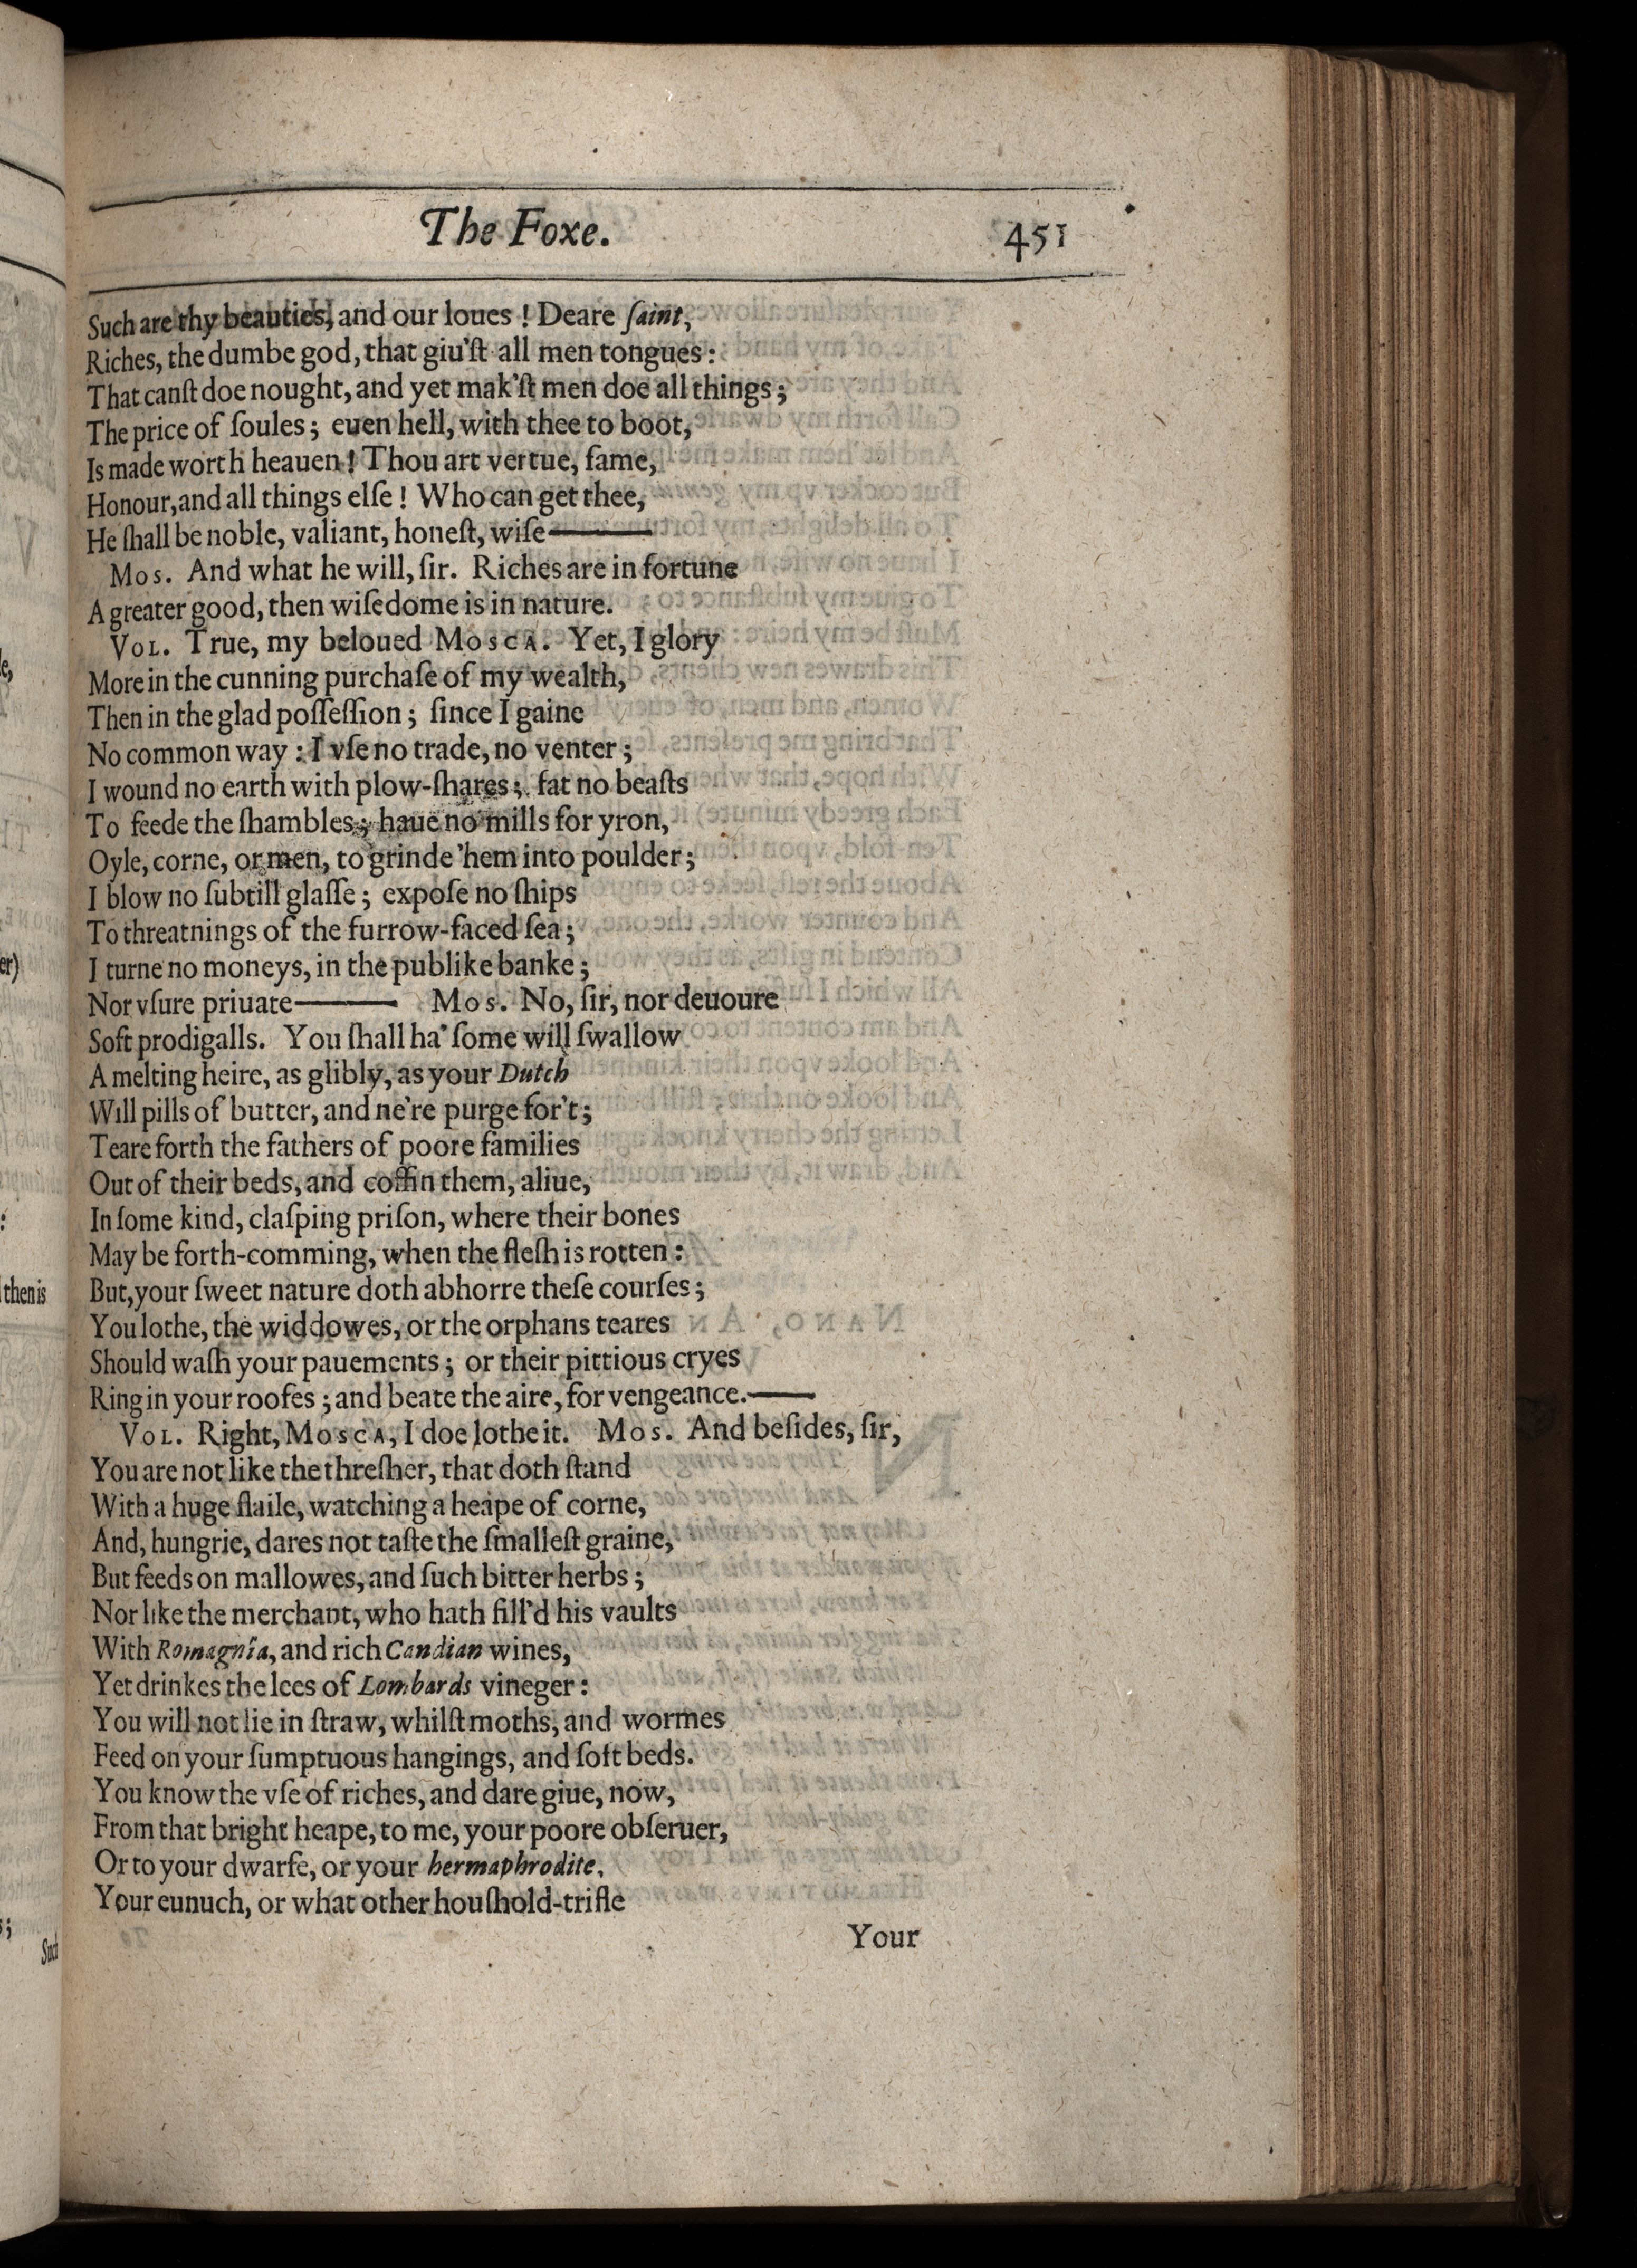 The Foxe. 451
Such are thy beauties, and our loues ! Deare ſaint,
Riches, the dumbe god, that giu'ſt all men tongues :
That canſt doe nought, and yet mak'ſt men doe all things ;
The price of ſoules ; euen hell, with thee to boot,
Is made worth heauen ! Thou art vertue, fame,
Honour, and all things elſe ! Who can get thee,
He ſhall be noble, valiant, honeſt, wiſe———
Mos. And what he will, ſir. Riches are in fortune
A greater good, then wiſedome is in nature.
Vol. True, my beloued Mosca. Yet, I glory
More in the cunning purchaſe of my wealth,
Then in the glad poſſeſſion ; ſince I gaine
No common way : I vſe no trade, no venter ;
I wound no earth with plow-ſhares ; fat no beaſts
To feede the ſhambles ; haue no mills for yron,
Oyle, corne, or men, to grinde 'hem into poulder ;
I blow no ſubtill glaſſe ; expoſe no ſhips
To threatnings of the furrow-faced ſea ;
I turne no moneys, in the publike banke ;
Nor vſure priuate——— Mos. No, ſir, nor deuoure
Soft prodigalls. You ſhall ha' ſome will ſwallow
A melting heire, as glibly, as your Dutch
Will pills of butter, and ne're purge for't ;
Teare forth the fathers of poore families
Out of their beds, and coffin them, aliue,
In ſome kind, claſping priſon, where their bones
May be forth-comming, when the fleſh is rotten :
But, your ſweet nature doth abhorre theſe courſes ;
You lothe, the widdowes, or the orphans teares
Should waſh your pauements ; or their pittious cryes
Ring in your roofes ; and beate the aire, for vengeance.——
Vol. Right, Mosca, I doe lothe it. Mos. And beſides, ſir,
You are not like the threſher, that doth ſtand
With a huge flaile, watching a heape of corne,
And, hungrie, dares not taſte the ſmalleſt graine,
But feeds on mallowes, and ſuch bitter herbs ;
Nor like the merchant, who hath fill'd his vaults
With Romagnîa, and rich Candian wines,
Yet drinkes the lees of Lombards vineger :
You will not lie in ſtraw, whilſt moths, and wormes
Feed on your ſumptuous hangings, and ſoft beds.
You know the vſe of riches, and dare giue, now,
From that bright heape, to me, your poore obſeruer,
Or to your dwarfe, or your hermaphrodite,
Your eunuch, or what other houſhold-trifle
Your